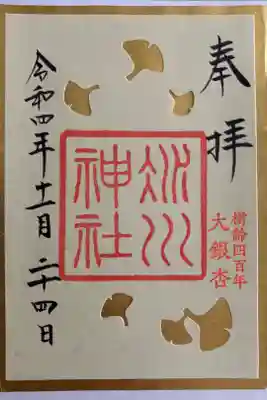 奉拝
樹齢四百年
大銀杏
氷川
神社
令和四年十一月二十四日